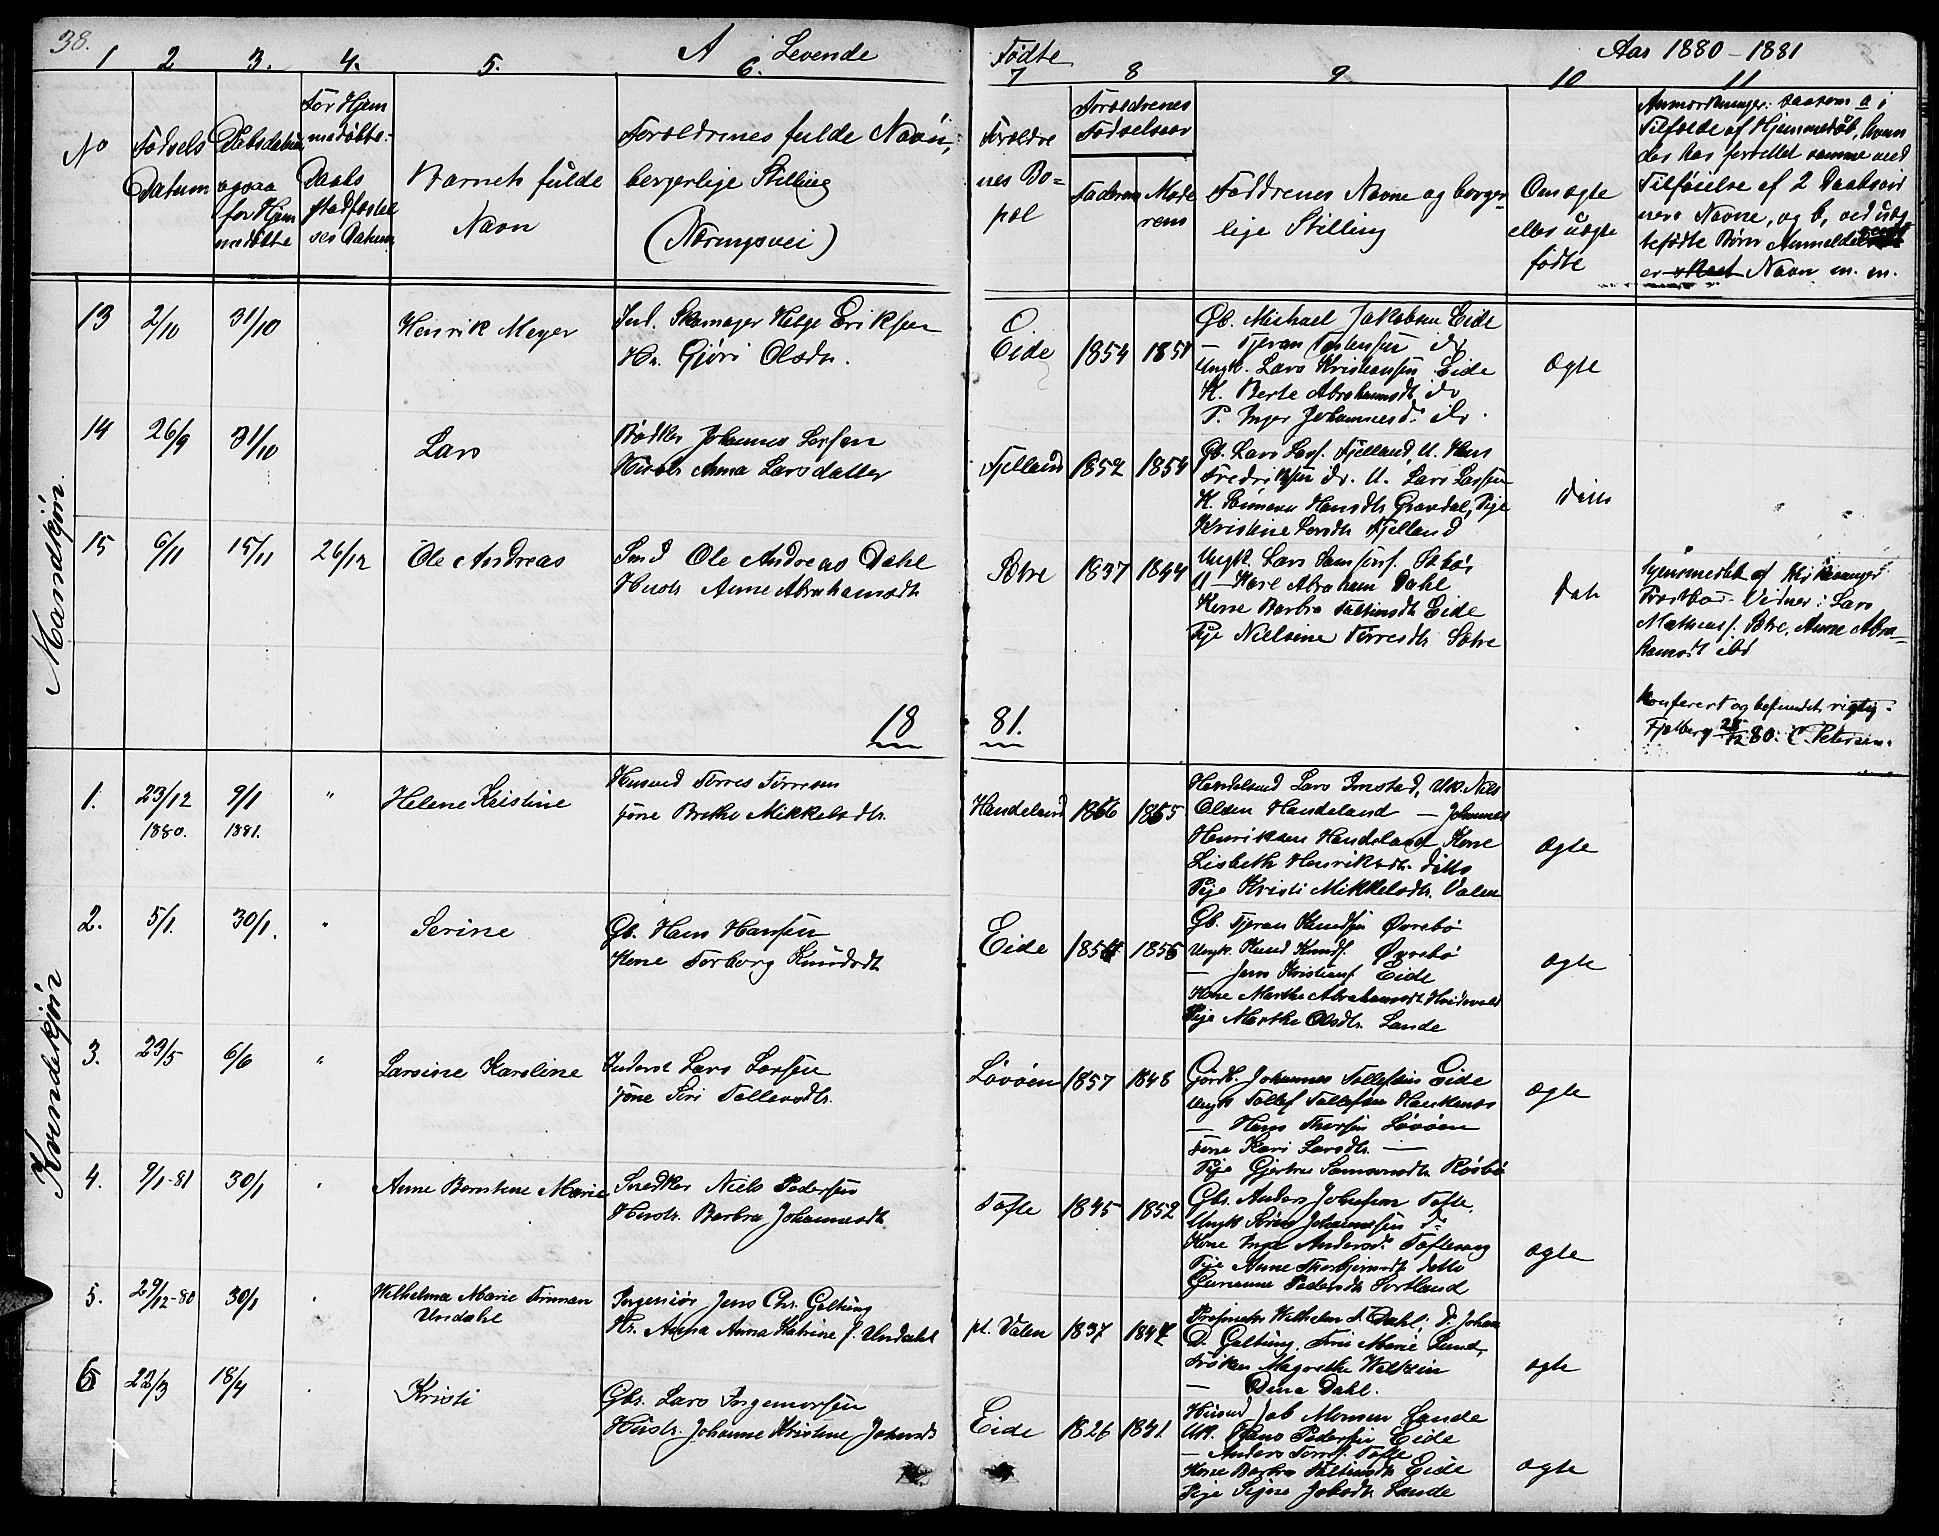 38.
A Levende Fødte Aar 1880-1881
1 2 3. 4. 5. 6. 7 8 9 10 11
No
Fødsels
Datum
Daabsdatum
ogsaa
for Hjem
medøbte
For Hjem
medøbte.
Daabs
stadfæstel
ses Datum
Barnets fulde
Navn
Forældrenes fulde Navn,
borgerlige Stilling
(Næringsvei)
Forældre
nes Bo=
pæl
Forældrenes
Fødselsaar
Faderens
Mode
rens
Faddrenes Navne og borger-
lige Stilling
Om ægte
eller uægte
fødte
Anmærkninger: saasom a i
Tilfælde af Hjemmedøb, hvem
der har forrettet samme med
Tilføielse af 2 Daabsvid
ners Navne, og b, ved uæg
tefødte Børn Anmelde
er Navn m. m.
Mandkjøn.
13 2/10 31/10
Henrik Meyer
Ind. Skomager Helge Eriksen
Hu. Gjøri Olsdtr.
Eide 1854 1851
Gb. Michael Jakobsen Eide
— Tjeran do
Ungk. Lars Kristiansen Eide
K. Berte Abrahamsdt. do
P. Inger Johannesd. do.
Ægte
14 26/9 31/10
Lars
Bødker Johannes Larsen
Hustr. Anna Larsdatter
Fjelland 1852 1854
Gb. Lars Lars. Fjelland, U. Hans
Fredriksen do. U. Lars Larsen
K. Hansdtr. Gravdal, Pige
Kristine Larsdtr. Fjelland
Ditto
15 6/11 15/11 26/12
Ole Andreas
Ind Ole Andreas Dahl
Hustr. Anne Abrahamsdtr
Ætre 1837 1844
Ungk. Lars Samsons.
U — Karl Abraham Dahl
Kone Barbra Eide
Pige Nielsine Torresdtr. Sætre
Dito
Hjemmedøbt af Kirkesanger
Vidner: Lars
Mathias. Ætre, Anne Abra-
hamsdt ibd
Konferert og befundet rigtig.
Fjelberg 28/12 80. C. Petersen.
18 81.
Kvindekjøn
1. 23/12 9/1 "
1880. 1881.
Helene Kristine
Husmd Torres Torresen
Kone Brethe Mikkelsdtr.
Handeland 1856 1855
Handelsmd Lars Imstad, Uk. Nils
Olsen Handeland — Johannes
Henriksen Handeland Kone
Lisbeth Henriksdtr. ditto
Pige Kristi Mikkelsdtr. Valen
Ægte
2. 5/1. 30/1. "
Serine
Gb. Hans Hansen
Kone Torborg Knudsdt
Eide 1854 1856
Gb. Tjeran Knudsen Øvrebø
Ungk. Knud Knuds. Øvrebø
— Jens Kristians. Eide
Kone Marthe Abrahamsdt.
Pige Marthe Olsdtr. Sande
Ægte
3. 23/5 6/6 "
Larsine Karoline
Inderst Lars Larsen
Kone Siri Tollevsdtr.
Løvøen 1857 1848
Gårdb. Johannes Tollefsen Eide
Ungk Tollef Tollefsen
— Hans Thorsen Løvøen
Kone Kari Larsdtr. —
Pige Gjertrue
Ægte
4. 9/1-81 30/1 "
Anne Berntine Marie
Snedker Niels Pedersen
Hustr. Barbra Johannesdt
Tofte 1845 1852
Gbr. Anders Johnsen Tofte.
Ungk Johannessen do
Kone Inga Andersd. Toftevaag
Pige Anne Thorbjørnsdt. ditto
Pedersdt. Sortland
Ægte
5. 29/12-80 30/1 "
Wilhelmea Marie Finman
Undahl
Ingeniør Jens Chr. Galtung
Hr. Anna Anna Katrine f. Undahl
pl. Valen 1837 1847
Proprietær Wilhelm A Dahl. Dr. Johan
D. Galtung. Frue Marie Lund,
Frøken Magrethe
— Dina Dahl.
Ægte
6 22/3 18/4 "
Kristi
Gbr. Lars Ingemorsen
Hustr. Johanne Kristine Johnsdt
Eide 1826 1841
Husmd Job Monsen Sande
Uk. Hans Pedersen Eide
— Anders Torres. Tofte
Kone Barbra Eide
Pige Signe Jobsdtr. Sande
Ægte